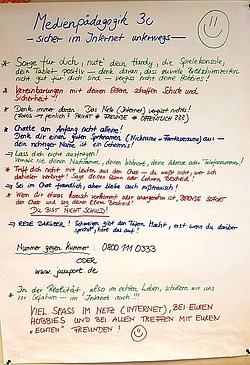 Medienpädagogik 3c
- sicher im Internet unterwegs -
* Sorge für dich, nutz' dein Handy, die Spielkonsole,
dein Tablet positiv - denk daran, dass zuviele Bildschirmzeiten
nicht gut für dich sind - vergiss nicht deine Hobbies!
* Vereinbarungen mit deinen Eltern schaffen Schutz und
Sicherheit!
* Denk immer daran: Das Netz (Internet) vergisst nichts!
(Fotos → peinlich! PRIVAT FREUNDE ÖFFENTLICH !!!)
* Chatte am Anfang nicht alleine!
Denk dir einen guten Spitznamen (Nickname = Fantasiename) aus -
dein richtiger Name ist ein Geheimnis!
→ Lass dich nicht austragen!
Verrate nie deinen Nachnamen, deinen Wohnort, deine Adresse oder Telefonnummer!
* Triff dich nicht mit Leuten aus dem Chat - du weißt nicht, wer sich
dahinter verbirgt! Sag deinen Eltern oder Lehrern Bescheid!
→ Sei im Chat freundlich, aber bleibe auch mißtrauisch!
* Wenn dir etwas komisch vorkommt oder unangenehm ist, BEENDE SOFORT
den Chat und sag deinen Eltern Bescheid!
DU BIST NICHT SCHULD!
→ REDE DARÜBER! Schweigen gibt den Tätern Macht, erst wenn du darüber
sprichst, hört das auf!
Nummer gegen Kummer: 0800 111 0333
ODER
www.juuport.de
* In der Realität, also im echten Leben, schützen wir uns
vor Gefahren - im Internet auch !!!
VIEL SPASS IM NETZ (INTERNET), BEI EUREN
HOBBIES UND BEI ALLEN TREFFEN MIT EUREN
„ECHTEN" FREUNDEN!